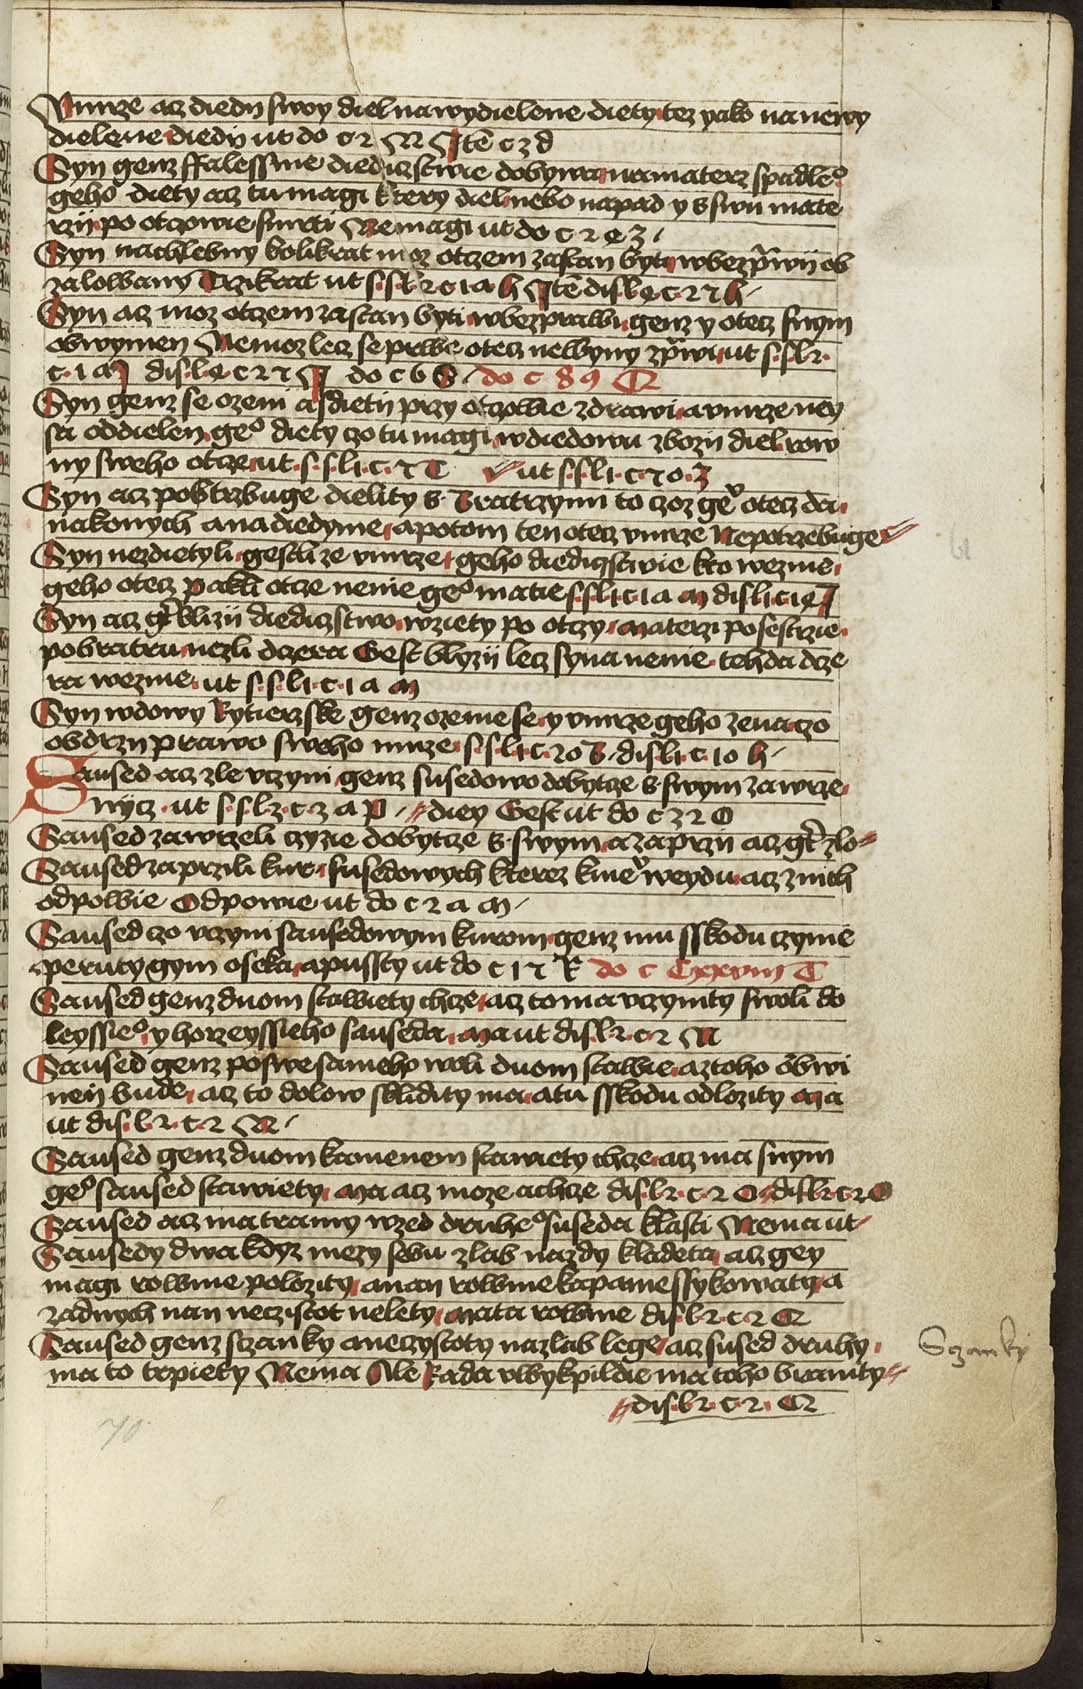 Vmrze acz diedij swoy diel na wydielene diety tez yako na newy
dieleene diedij ut do c 2 N Jtē c 3 d
Syn genz ffalessnie diedicztwie dobywa na materz spadleº
geho diety acz tu magi ktery diel nebo napad y s swu mate
rzij po otczowie smrti Nemagi ut do c 2 q 3
Syn nachlebny kolikrat moz otczem zastan byti w bezp̄rawij ob
zalowany Trzikrat ut s.s.l 2 c 1 a h Jtē dis.l q c 2 7 h
Syn acz moz otczem zastan byti w bezprawi genz y otecz s nym
obwynien Nemoz lecz se prwe otecz newyny zp̄wi ut s.s.l 2
c 1 a J dis.l q c 2 7 do c 6 S do c 89
Syn genz se ozeni a diety przy otczowie zdrawi a vmrze ney
sa oddielen geº diety czo tu magi w diedowu zbozij diel row
ny sweho otcze ut s.s.l 1 c 7 T ut s.s.l 1 c 7 0 3
Syn acz pobtrzbuge dielity s bratrzymi to czoz geº otecz da
na konych a na diedyme a potom ten otecz vmrze Nepotrzebuge
Syn nezdietyli gestli ze vmrze geho diedicztwie kto wezme
geho otecz pakli otcze nenie geº matie s.s.l 1 c 1 a m dis.l 1 c 1 q J
Syn acz gt blizij diedicztwo wziety po otczy materzi po sestrzie
po bratru nezli dczera Gest blyzij lecz syna nenie tehda dcze
ra wezme ut s.s.l 1 c 1 a m
Syn wdowy Rytierzske genz ozenie se y vmrze geho zena czo
obdrzij prawo sweho muze s.s.l 1 c 20 dis.l 1 c 10 h
Saused acz zle vczyni genz susedowo dobytcze s swym zawrze
Nycz ut s.s.l 2 c 3 a p diey Gest ut do c 3 2 O
Saused zawrzeli czyzie dobytcze s swym a zaprzij acz gt zlo
Saused zaprzili kur susedowych kterez k nieº weydu acz z nich
odpowie Odpowie ut do c 2 a m
Saused czo vczyni sausedowym kurom genz mu sskodu czynie
peruty gym oseka a pussty ut do c 1 7 R do c Cxxviii T
Saused genz duom stawiety chcze acz to ma vczynity s woli do
leyssieº y horzeyssieho sauseda Ma ut dis.l 2 c 2 N
Saused genz po swe sameho woli duom stawie a z toho obwi
nen bude acz to dolow sklidity ma a tu sskodu odlozity Ma
ut dis.l 2 c 2 N
Saused genz duom kamenem stawiety chcze acz ma s nym
geº saused stawiety Ma acz moze a chcze dis.l 2 c 2 O dis.l 2 c 2 O
Saused acz ma tramy w zed druheº suseda klasti Nema ut
Sausedy dwa kdyz mezy sebu zlab na zdy kladeta acz gey
magi rownie polozity a nan rownie kapanie ssykowaty a
zadnych nan neczistot nelety Mata rownie dis.l 2 c 2
Saused genz sczanky a neczystoty na zlab lege acz sused druhy
ma to trpiety Nema Ale Rada w wykpildie ma toho branity
dis.l 2 c 2
Sczanky
70